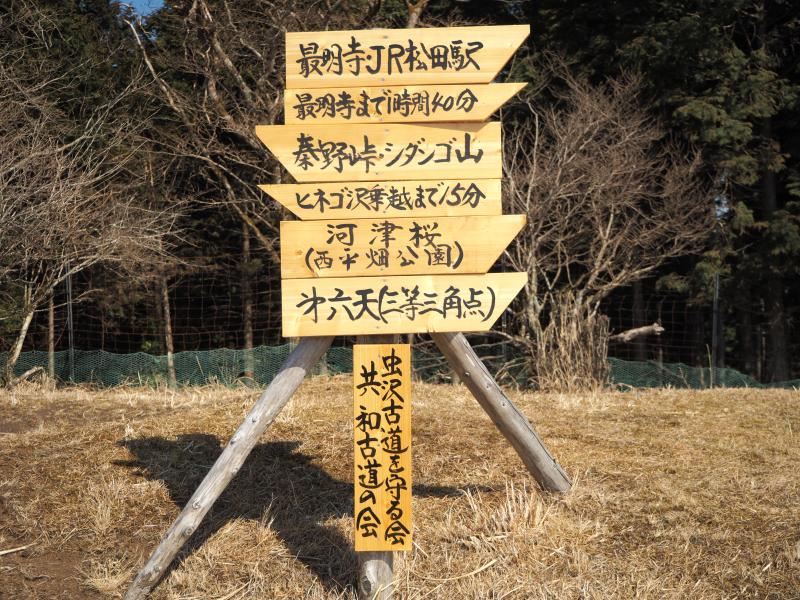 最明寺・JR松田駅
最明寺まで1時間40分
秦野峠・シダンゴ山
ヒネゴ沢乗越まで15分
河津桜
(西平畑公園)
㐧六天(三等三角点)
虫沢古道を守る会
共和古道の会